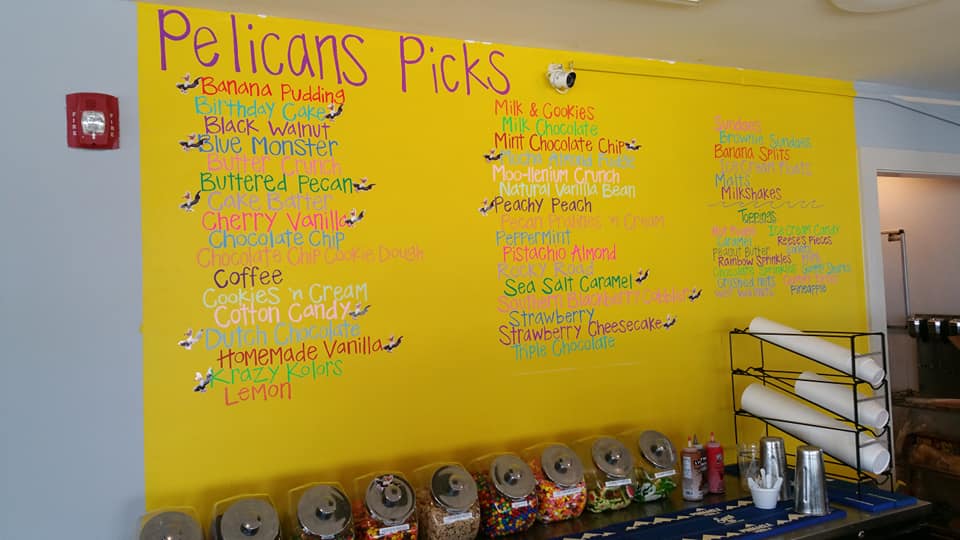 Pelicans Picks
Banana Pudding
Birthday Cake
Black Walnut
Blue Monster
Butter Crunch
Buttered Pecan
Cake Batter
Cherry Vanilla
Chocolate Chip
Chocolate Chip Cookie Dough
Coffee
Cookies 'n Cream
Cotton Candy
Dutch Chocolate
Homemade Vanilla
Krazy Kolors
Lemon
Milk & Cookies
Milk Chocolate
Mint Chocolate Chip
Mocha Almond Fudge
Moo-llenium Crunch
Natural Vanilla Bean
Peachy Peach
Pecan Pralines 'n Cream
Peppermint
Pistachio Almond
Rocky Road
Sea Salt Caramel
Southern Blackberry Cobbler
Strawberry
Strawberry Cheesecake
Triple Chocolate
Sundaes
Brownie Sundaes
Banana Splits
Ice Cream Floats
Malts
Milkshakes
Toppings
Hot Fudge Ice Cream Candy
Caramel Reese's Pieces
Peanut Butter
Rainbow Sprinkles
Chocolate Sprinkles Gummy
Crushed Nuts
Wet Walnuts Pineapple
FIRE
FIRE